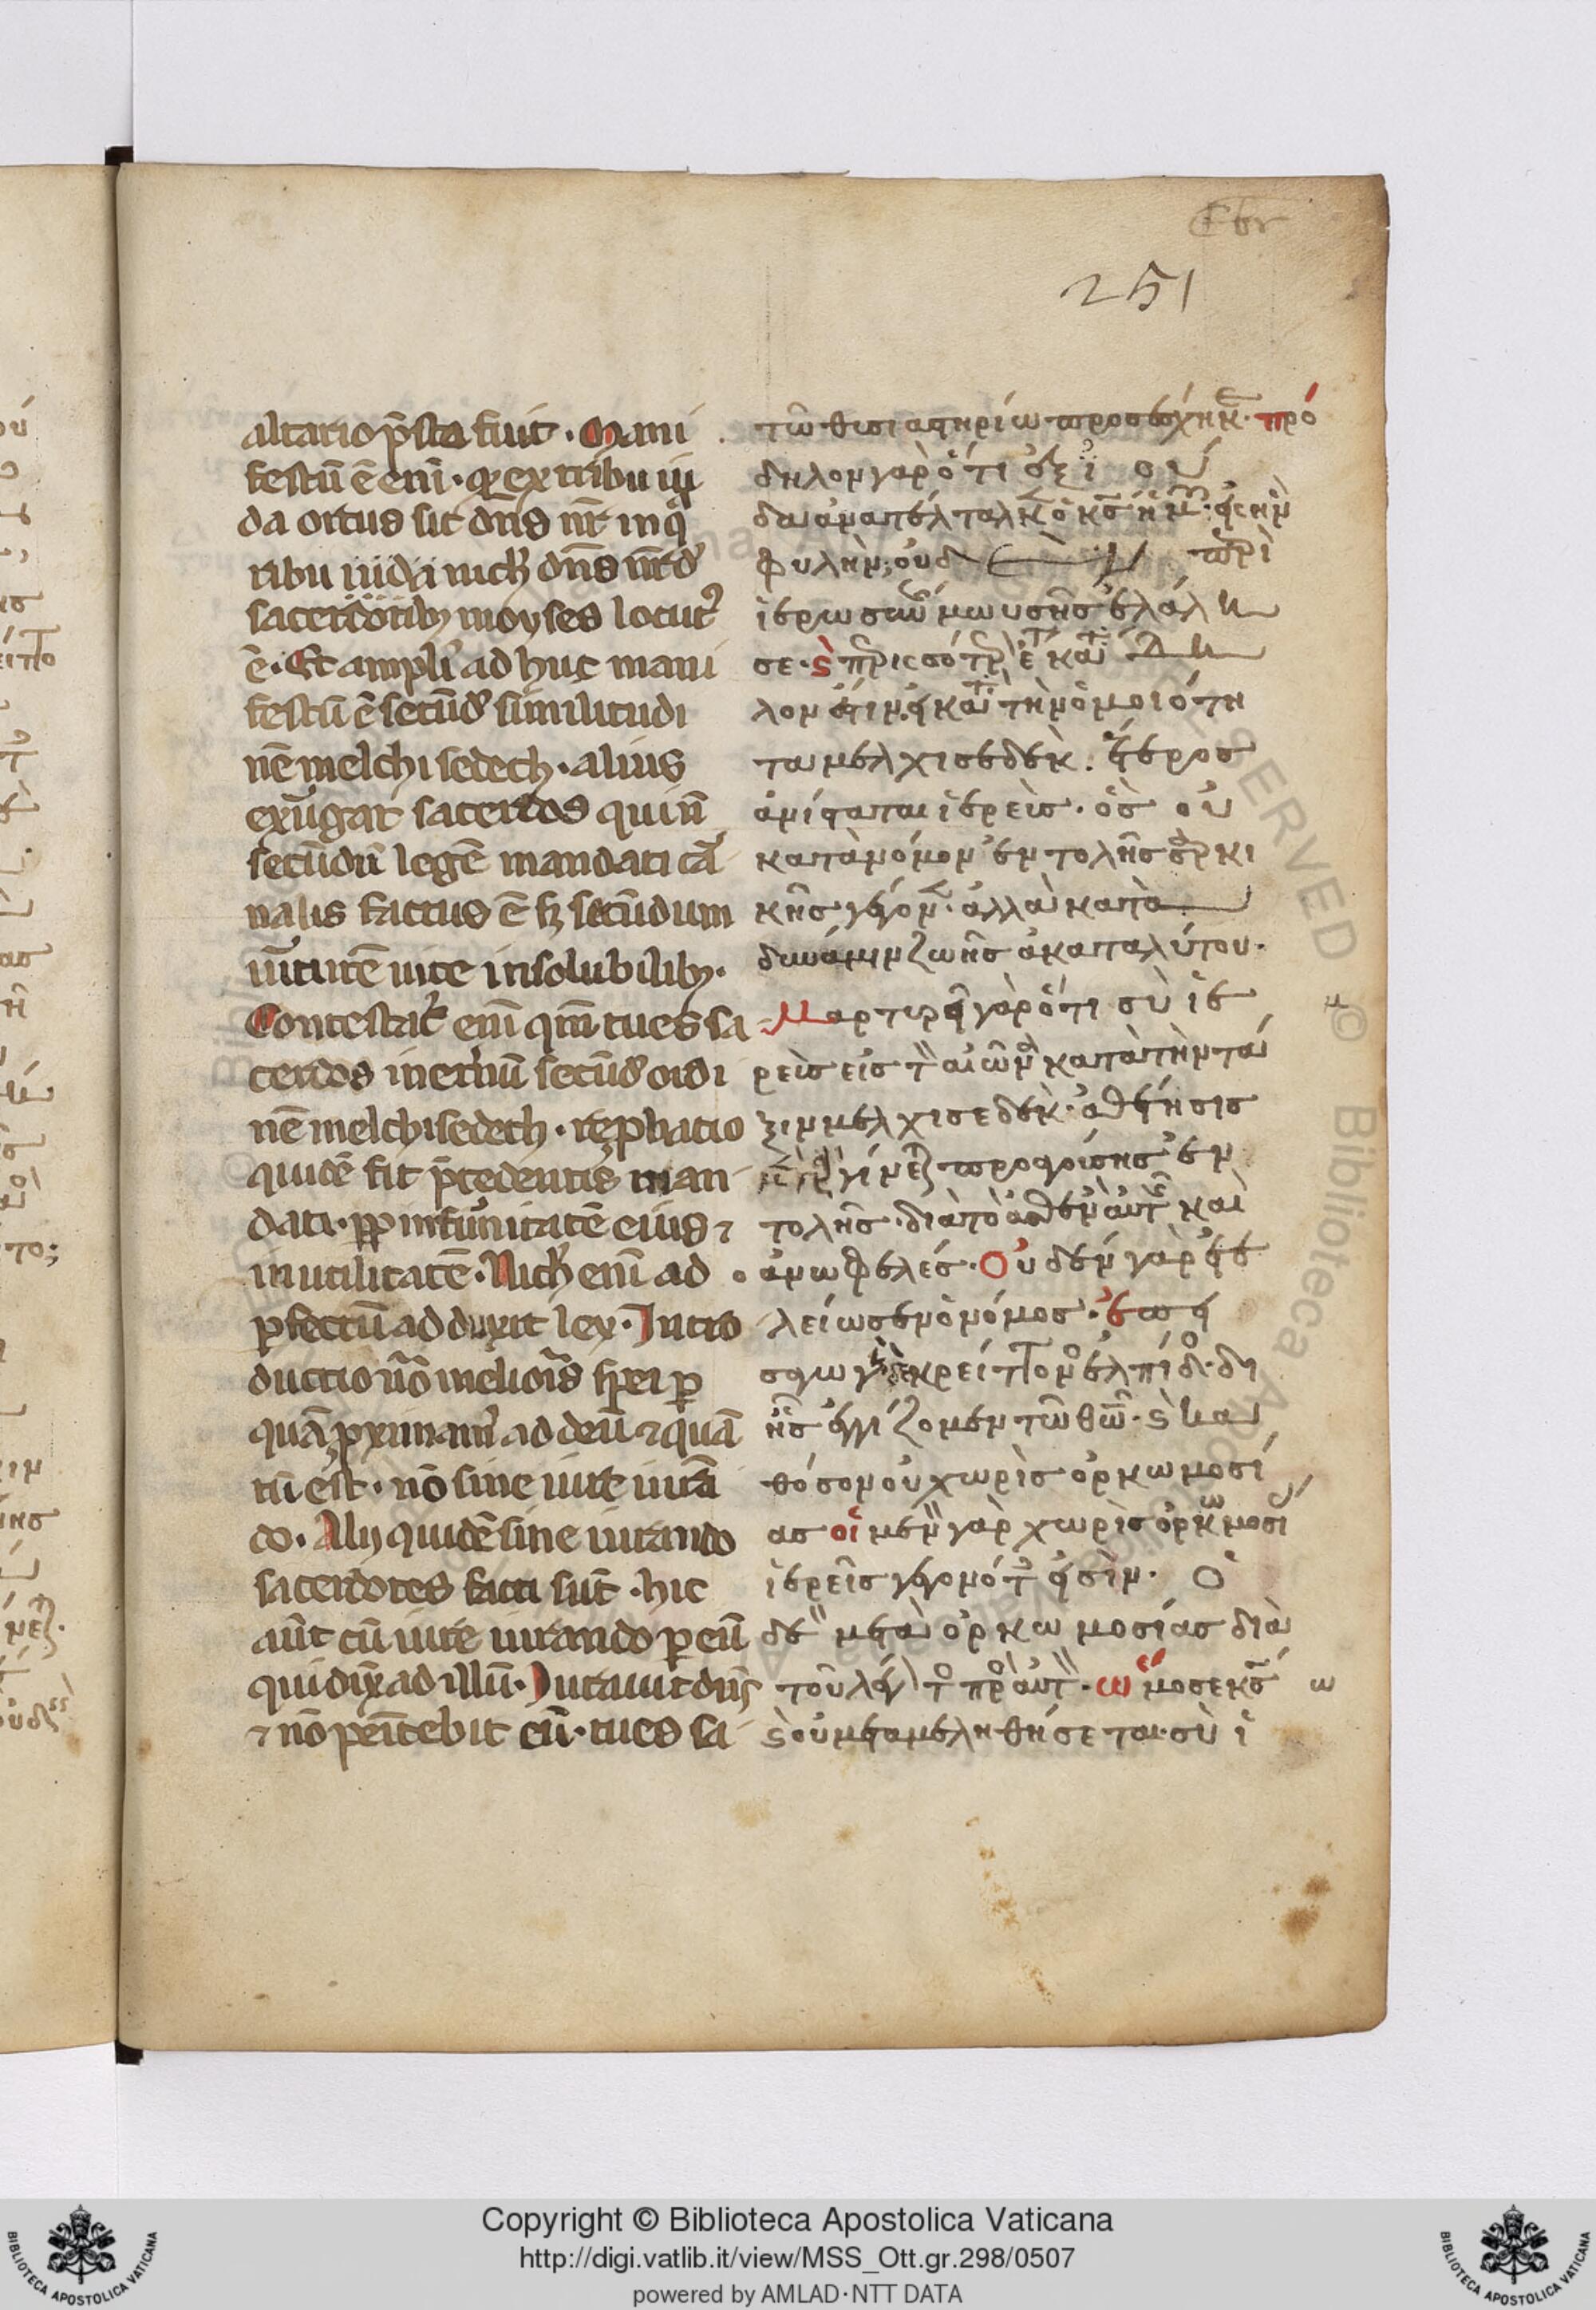 Ebr
251
altario p̄sto fuit · Mani
festū ē eni᷑ · qđ ex tribu iu
da ortus sit dn̄s nr̄ in q̊
tribu iuda nich̄ dn̄s nr̄ d̕
sacerdotib; moyses locut᷒
ē · Et ampli᷒ ad huc mani
festū ē secūd̕ similitudi
nē melchisedech · alius
exurgat sacerdos qui nō
secūdū legē mandati ca᷑
nalis factus ē sȝ secundum
uirtutē uite insolubilib; ·
Contestat᷑ eni᷑ qm̄ tu es sa
cerdos in et̕nū secūd̕ ordi
nē melchisedech · rep̱batio
quidē fit p̄cedentis man
dati · pp̱ infirmitatē eius ⁊
in utilitatē · Nich̄ eni᷑ ad
ꝑfectū adduxit lex · Intro
ductio uō melioris spei ꝑ
quā ꝓximam᷒ ad deū ⁊ quā
tū est · nō sine iure iurā
do · Alij quidē sine iurando
sacerdotes facti sūt · hic
aūt cū iure iurando ꝑ eū
qui dix̄ ad illū · Iurauit dn̄s
⁊ nō penitebit eū · tu es sa
τῶ θυσιαστηρίω προσέσχηκε · πρό
δηλον γαρ ὅτι ἐξ ἰού
δα ἀνατέταλκεν ὁ κς̄ ἡμῶν · εἰς ἣν
φυλὴν οὐδὲν περὶ
ἱερωσύνης μωυσῆς ἐλάλη
σε · ϗ περισσότερον ἔτι κατάδη
λον ἐστιν · εἰ κατὰ τὴν ὁμοιότη
τα μελχισεδὲκ · ἕτερος
ἀνίσταται ἱερεὶς · ὃς οὐ
κατὰ νόμον ἐντολῆς σαρκι
κῆς γέγονεν · ἀλλὰ κατὰ
δυνάμιν ζωῆς ἀκαταλύτου ·
Μαρτυρεῖ γὰρ ὅτι σὺ ἱε
ρεὶς εἰς τὸν αἰῶνα κατὰ τὴν τά
ξιν μελχισεδέκ · ἀθέτησις
μὲν γὰρ γίνεται προαγούσης ἐν
τολῆς · διὰ τὸ ἀσθενὲς αὐτῆς καὶ
ἀνωφελές · Οὐδὲν γὰρ ἐτε
λείωσεν ὁ νόμος · ἐπει
σαγωγὴ δὲ κρείττονος ἐλπίδος · δι
ἧς ἐγγίζομεν τῶ θεῶ · ϗ κα
θόσον οὐ χωρὶς ὁρκωμοσί
ας οἱ μὲν γὰρ χωρὶς ὁρκωμοσί
ἱερεῖς γεγονότες εἰσὶν · Ὁ
δὲ μετὰ ὁρκωμοσίας διὰ
τοῦ λέγοντος πρὸς αὐτόν · ὤμοσε κς̄ ω
ϗ οὐ μεταμεληθήσεται · σὺ ἱ
Copyright © Biblioteca Apostolica Vaticana
http://digi.vatlib.it/view/MSS_Ott.gr.298/0507
powered by AMLAD·NTT DATA